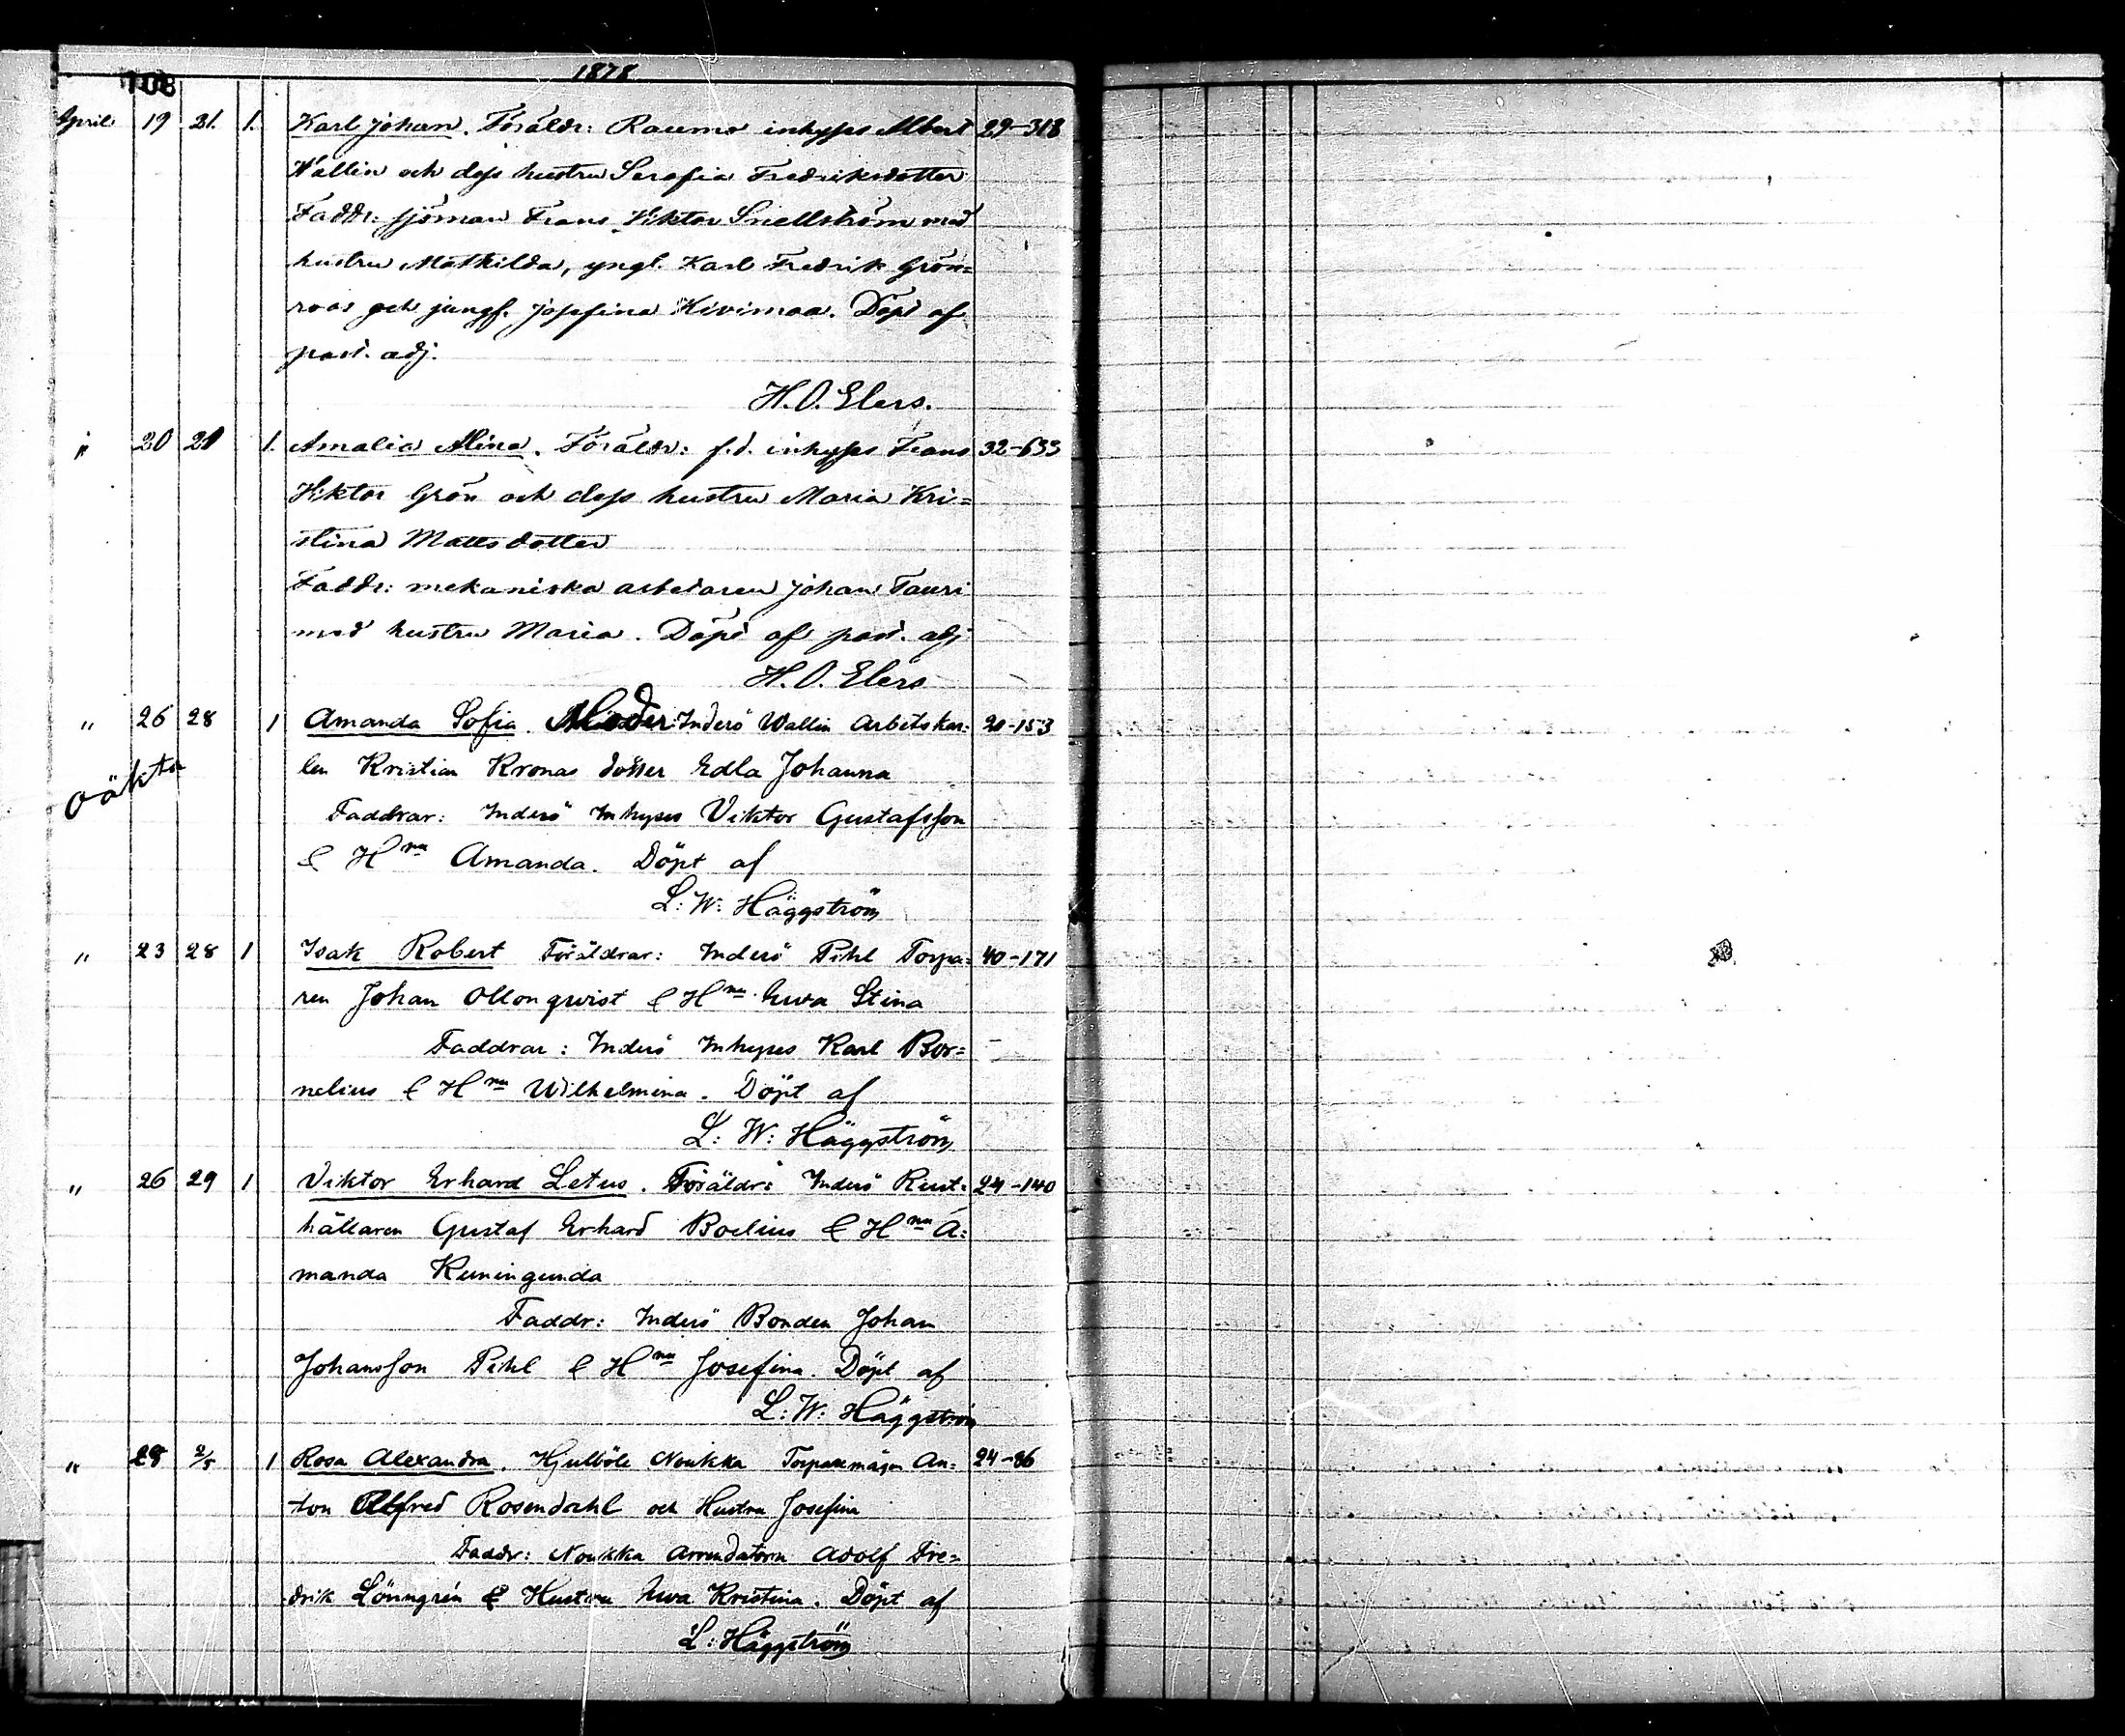 108
1878
April 19 21. 1. Karl Johan. Föräldr: Raumo inhyses Albert 29-318
Wallin och dess hustru Serafia Fredriksdotter
Faddr: sjöman Frans Viktor Snellström med
hustru Mathilda, yngl. Karl Fredrik Grön=
roos och jungf. Josefina Kivimaa. Döpt af
past. adj.
H. O. Elers.
" 20 21 1. Amalia Alina. Föräldr: f.d. inhyses Frans 32-633
Viktor Grön och dess hustru Maria Kri=
stina Mattsdotter
Faddr: mekaniska arbetaren Johan Tauri
med hustru Maria. Döpt af past. adj
H. O. Elers
" 26 28 1 Amanda Sofia. Moder: Inderö Wallin Arbetskar= 20-153
oäkta
len Kristian Kronas dotter Edla Johanna
Faddrar: Inderö Inhyses Viktor Gustafsson
& Hru Amanda. Döpt af
L: W: Häggström
" 23 28 1 Isak Robert Föräldrar: Inderö Pihl Torpa= 40-171
ren Johan Ollonqwist & Hru Ewa Stina
Faddrar: Inderö Inhyses Karl Bor=
nelius & Hru Wilhelmina. Döpt af
L: W: Häggström
" 26 29 1 Viktor Erhard Letus. Föräldr: Inderö Rust= 24-140
hållaren Gustaf Erhard Boelius & Hru A=
manda Kuningunda
Faddr: Inderö Bonden Johan
Johansson Pihl & Hru Josefina. Döpt af
L: W: Häggström
" 28 2/5 1 Rosa Alexandra. Hjulböle Noukka Torparemågen An= 24-86
ton Alfred Rosendahl och Hustru Josefina
Faddr: Noukka Arrendatorn Adolf Fre=
drik Lönngrén & Hustru Ewa Kristina. Döpt af
L: Häggström